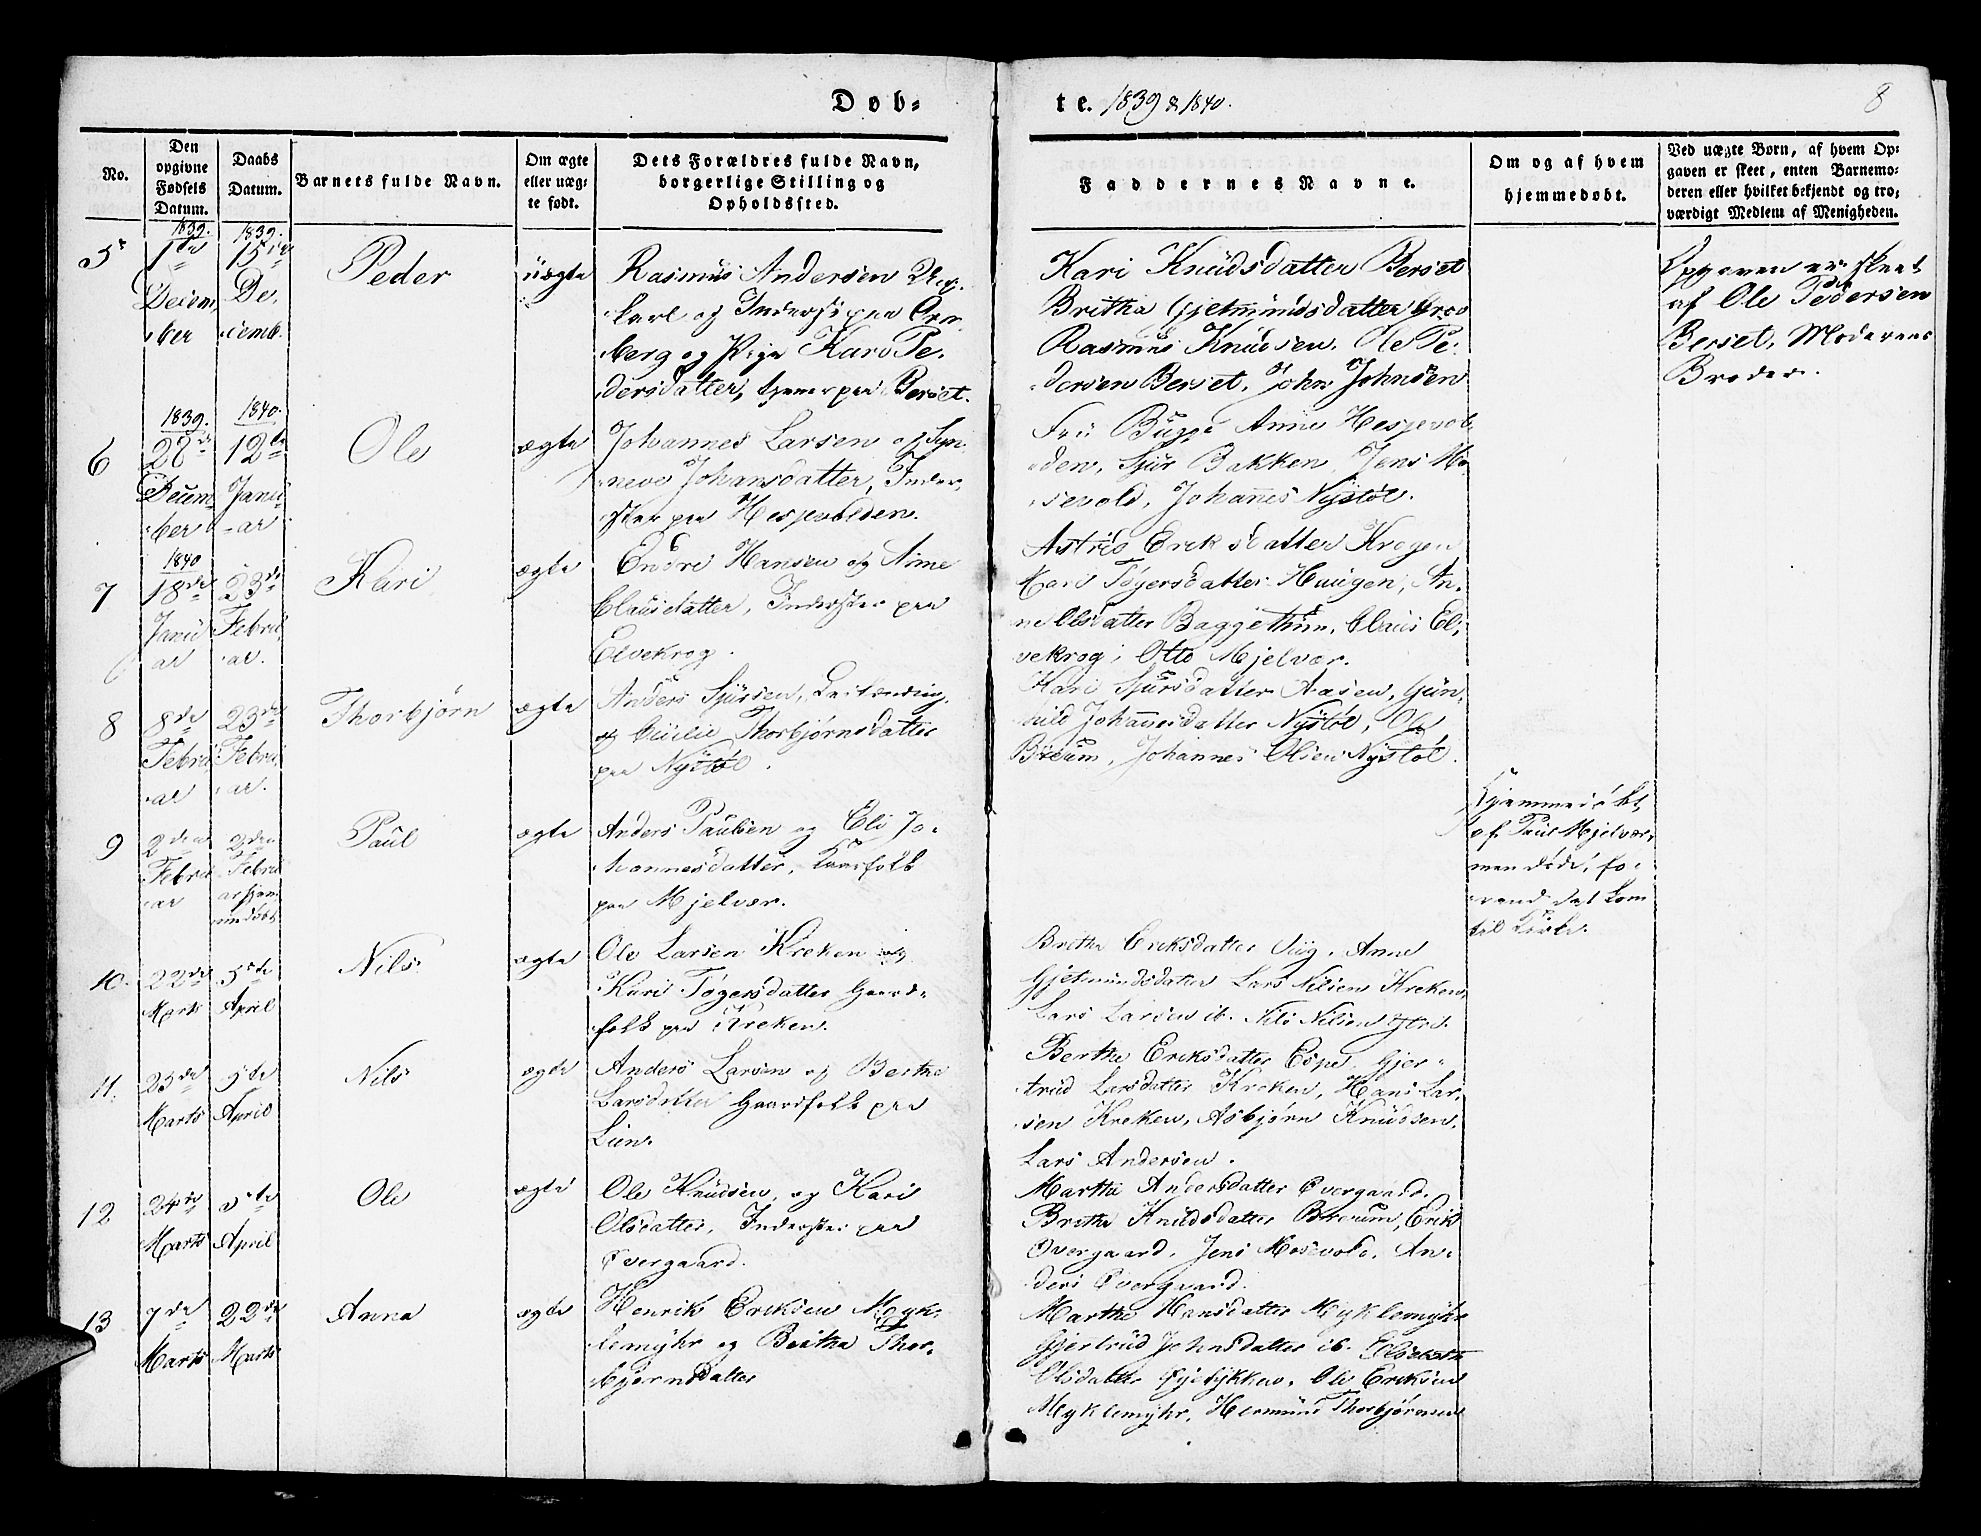 Døb=
te. 1839 & 1840.
8
No.
Den
opgivne
Fødsels
Datum.
Daabs
Datum.
Barnets fulde Navn.
Om ægte
eller uæg=
te født.
Dets Forældres fulde Navn,
borgerlige Stilling og
Opholdssted.
Faddernes Navne.
Om og af hvem
hjemmedøbt.
Ved uægte Børn, af hvem Op=
gaven er skeet, enten Barnemo=
deren eller hvilket bekjendt og tro=
værdigt Medlem af Menigheden.
5
1839.
1ste
Decem,
ber
1839.
15de
De,
cemb.
Peder
uægte
Rasmus Andersen
karl og Inderst paa
berg og Pige Kari Pe,
dersdatter, tjener paa Berset.
Kari Knudsdatter Berset
Britha Gjelmundsdatter
Rasmus Knudsen, Ole Pe,
dersen Berset, John Johnsen
Opgaven er skeet
af Ole Pedersen
Berset, Moderens
Broder.
6
1839.
27de
Decem,
ber
1840.
12te
Janu,
ar
Ole
ægte
Johannes Larsen og Syn,
neve Johansdatter, Inder,
ster paa Hesjevolden.
Fru Bugge Anne Hesjevol,
den, Sjur Bakken, Jens Mo
sevold, Johannes Nystøl.
7
1840
18de
Janu
ar
23de
Febru
ar.
Kari
ægte
Endre Hansen og Anne
Clausdatter, Inderster paa
Elvekrog.
Astrid Eriksdatter Krogen
Kari Tøgersdatter Haugen, An,
ne Olsdatter Baggethun, Claus El,
vekrog, Otto Mjelvær.
8
8de
Febru,
ar
23de
Febru,
ar.
Thorbjørn
ægte
Anders Sjursen,
og Cicilie Thorbjørnsdatter
paa Nystøl.
Kari Sjursdatter Aasen, Gun,
hild Johannesdatter Nystøl, Ole
Johannes Olsen Nystøl.
9
2den
Febru
ar
2den
Febru
ar hjem
medøbt
Paul
ægte
Anders Paulsen og Eli Jo,
hannesdatter, Gaardfolk
paa Mjelvær.
Hjemmedøbt
af Paul Mjelvær,
men døde, fo,
rend det kom
til Kirke.
10.
22de
Marts
5te
April
Nils
ægte
Ole Larsen Kreken og
Kari Tøgersdatter Gaard,
folk paa Kreken.
Brithe Eriksdatter Anne
Gjelmundsdatter Lars Nilsen Kreken,
Lars Larsen ib. Nils Nilsen
11.
23de
Marts
5te
April
Nils
ægte
Anders Larsen og Berthe
Larsdatter Gaardfolk paa
Lien.
Berthe Eriksdatter Espe, Gjer,
trud Larsdatter Kreken, Hans Lar,
sen Kreken, Asbjørn Knudsen,
Lars Andersen.
12
24de
Marts
5te
April
Ole
ægte
Ole Knudsen, og Kari
Olsdatter, Inderster paa
Øvergaard.
Marthe Andersdatter Øvergaard,
Brithe Knudsdatter Erik
Øvergaard, Jens Mosevold, An,
ders Øvergaard.
13
7de
Marts
22de
Marts
Anna
ægte
Henrik Eriksen Myk,
lemyhr og Brithe Thor,
bjørnsdatter
Marthe Hansdatter Myklemyhr
Gjertrud Johnsdatter ib. Elisabeth
Olsdatter Ole Eriksen
Myklemyhr, Hermund Thorbjørnsen